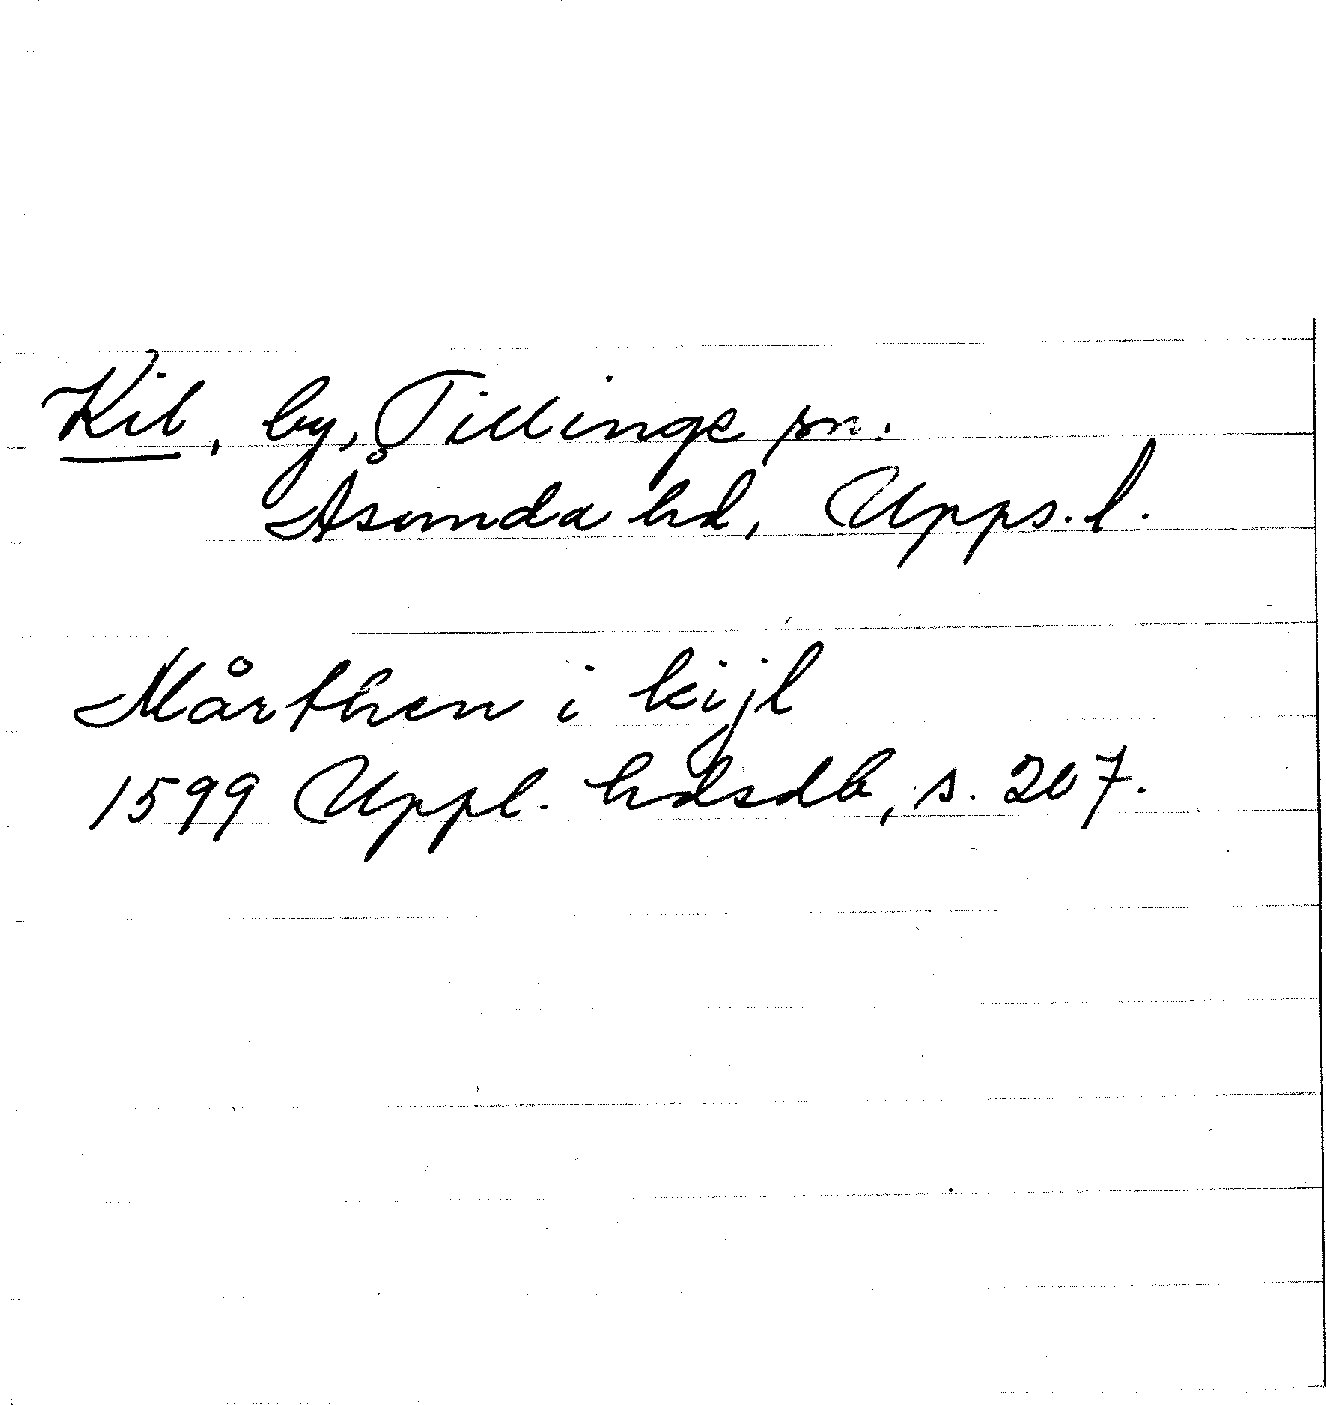 Kil, by, Tillinge sn.
Åsunda hd, Upps. l.
Mårthen i kijl
1599 Uppl. hdsdb, s. 207.